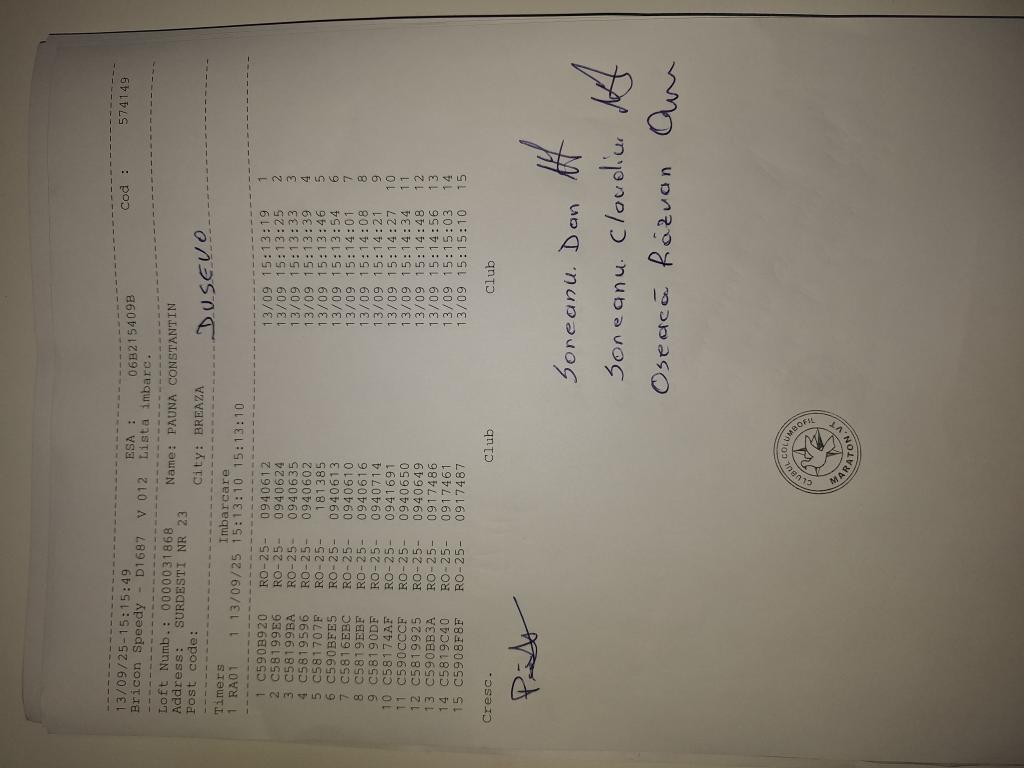 13/09/25-15:15:49 ESA : 06B215409B
Bricon Speedy - D1687 V 012 Lista imbarc. cod : 574149
Loft Numb.: 0000031868 Name: PAUNA CONSTANTIN
Address: SURDESTI NR 23
Post code: City: BREAZA DUSEVO
Timers Imbarcare
1 RA01 1 13/09/25 15:13:10 15:13:10
1 C590B920 RO-25- 0940612 13/09 15:13:19 1
2 C58199E6 RO-25- 0940624 13/09 15:13:25 2
3 C58199BA RO-25- 0940635 13/09 15:13:33 3
4 C5819596 RO-25- 0940602 13/09 15:13:39 4
5 C581707F RO-25- 181385 13/09 15:13:46 5
6 C590BFE5 RO-25- 0940613 13/09 15:13:54 6
7 C5816EBC RO-25- 0940610 13/09 15:14:01 7
8 C5819EBF RO-25- 0940616 13/09 15:14:08 8
9 C58190DF RO-25- 0940714 13/09 15:14:21 9
10 C58174AF RO-25- 0941691 13/09 15:14:27 10
11 C590CCCF RO-25- 0940650 13/09 15:14:34 11
12 C5819925 RO-25- 0940649 13/09 15:14:48 12
13 C590BB3A RO-25- 0917486 13/09 15:14:56 13
14 C5819C40 RO-25- 0917461 13/09 15:15:03 14
15 C5908F8F RO-25- 0917487 13/09 15:15:10 15
Cresc. Club Club
Soneanu Dan
Soneanu Claudiu
Oseacă Răzvan
CLUBUL COLUMBOFIL
MARATON VT